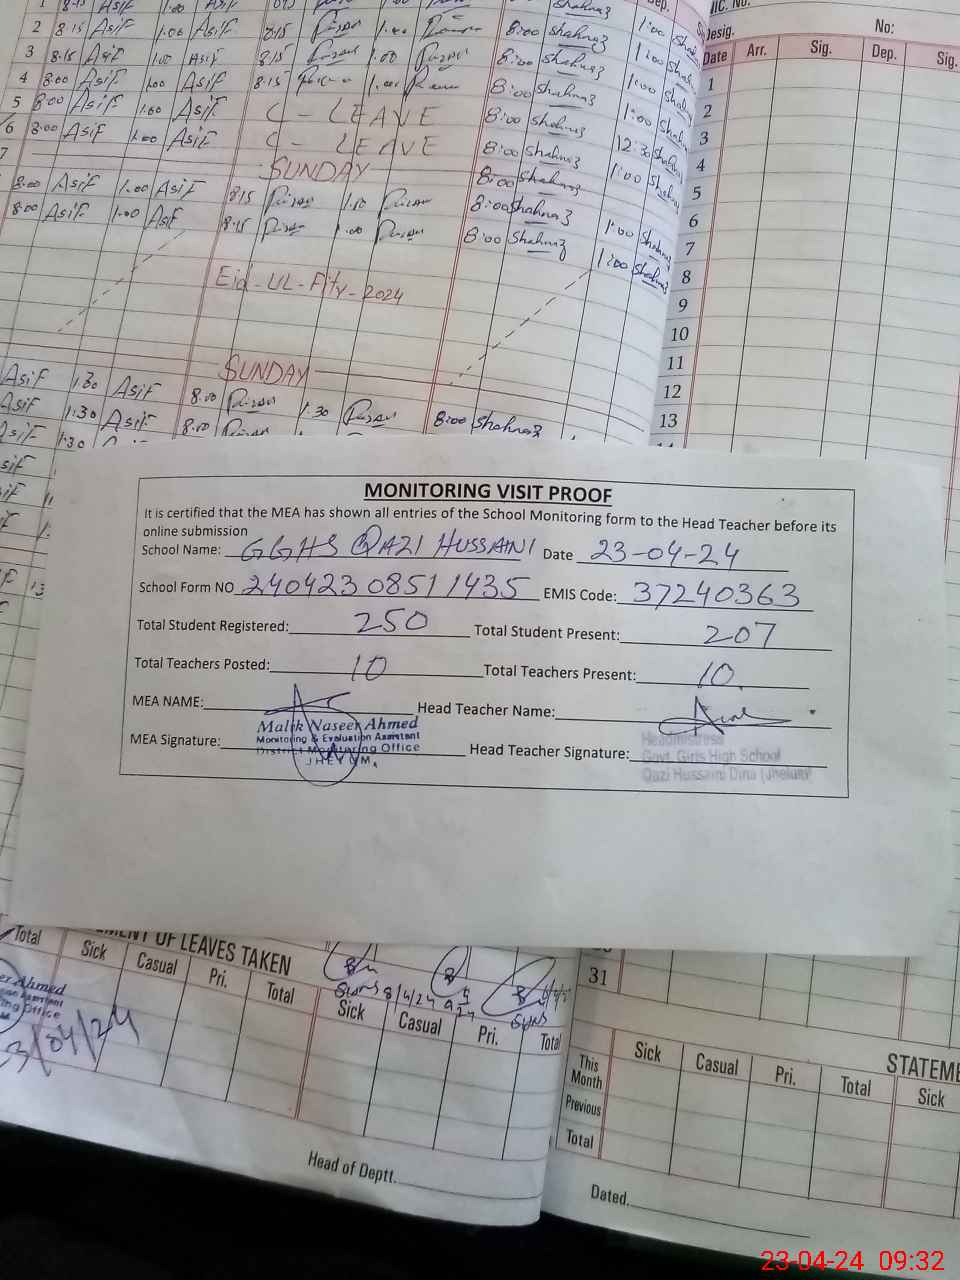 1 8:15 Asif 1.00 Asif
2 8:15 Asif 1.00 Asif 8:15 8:00 Shahnaz 1:00
3 8.15 Asif 1.00 Asif 8:15 1.00 8:00 Shahnaz 1:00
4 8:00 Asif 1.00 Asif 8:15 1.00 8:00 Shahnaz 1:00
5 8:00 Asif 1.00 Asif C - LEAVE 8:00 Shahnaz 1:00
6 8:00 Asif 1.00 Asif C - LEAVE 8:00 Shahnaz 12:30 Shahnaz
7 SUNDAY 8:00 Shahnaz 1:00 Shahnaz
8:00 Asif 1.00 Asif 8:15 8:00 Shahnaz 1:00 Shahnaz
8:00 Asif 1.00 Asif 8:15 1.00 8:00 Shahnaz 1:00 Shahnaz
Eid-UL-Fity-2024
SUNDAY
Asif 1:30 Asif 8:00 1:30 8:00 Shahnaz
Asif 1:30 Asif 8:00
Asif 1:30
Dep.
No:
Desig.
Date Arr. Sig. Dep. Sig.
1
2
3
4
5
6
7
8
9
10
11
12
13
MONITORING VISIT PROOF
It is certified that the MEA has shown all entries of the School Monitoring form to the Head Teacher before its
online submission
School Name: GGHS QAZI HUSSAINI Date 23-04-24
School Form NO 240423 08511435 EMIS Code: 37240363
Total Student Registered: 250 Total Student Present: 207
Total Teachers Posted: 10 Total Teachers Present: 10
MEA NAME: Head Teacher Name:
Malik Naseer Ahmed
Monitoring & Evaluation Assistant
District Monitoring Office
JHELUM.
MEA Signature: Head Teacher Signature:
Headmistress
Govt. Girls High School
Qazi Hussaini Dina (Jhelum)
31
OF LEAVES TAKEN
Total Sick Casual Pri. Total Sick Casual Pri. Total
8/4/24
Ahmed
Office
3/04/24
STATEME
Sick Casual Pri. Total Sick
This Month
Previous
Total
Head of Deptt.
Dated
23-04-24 09:32